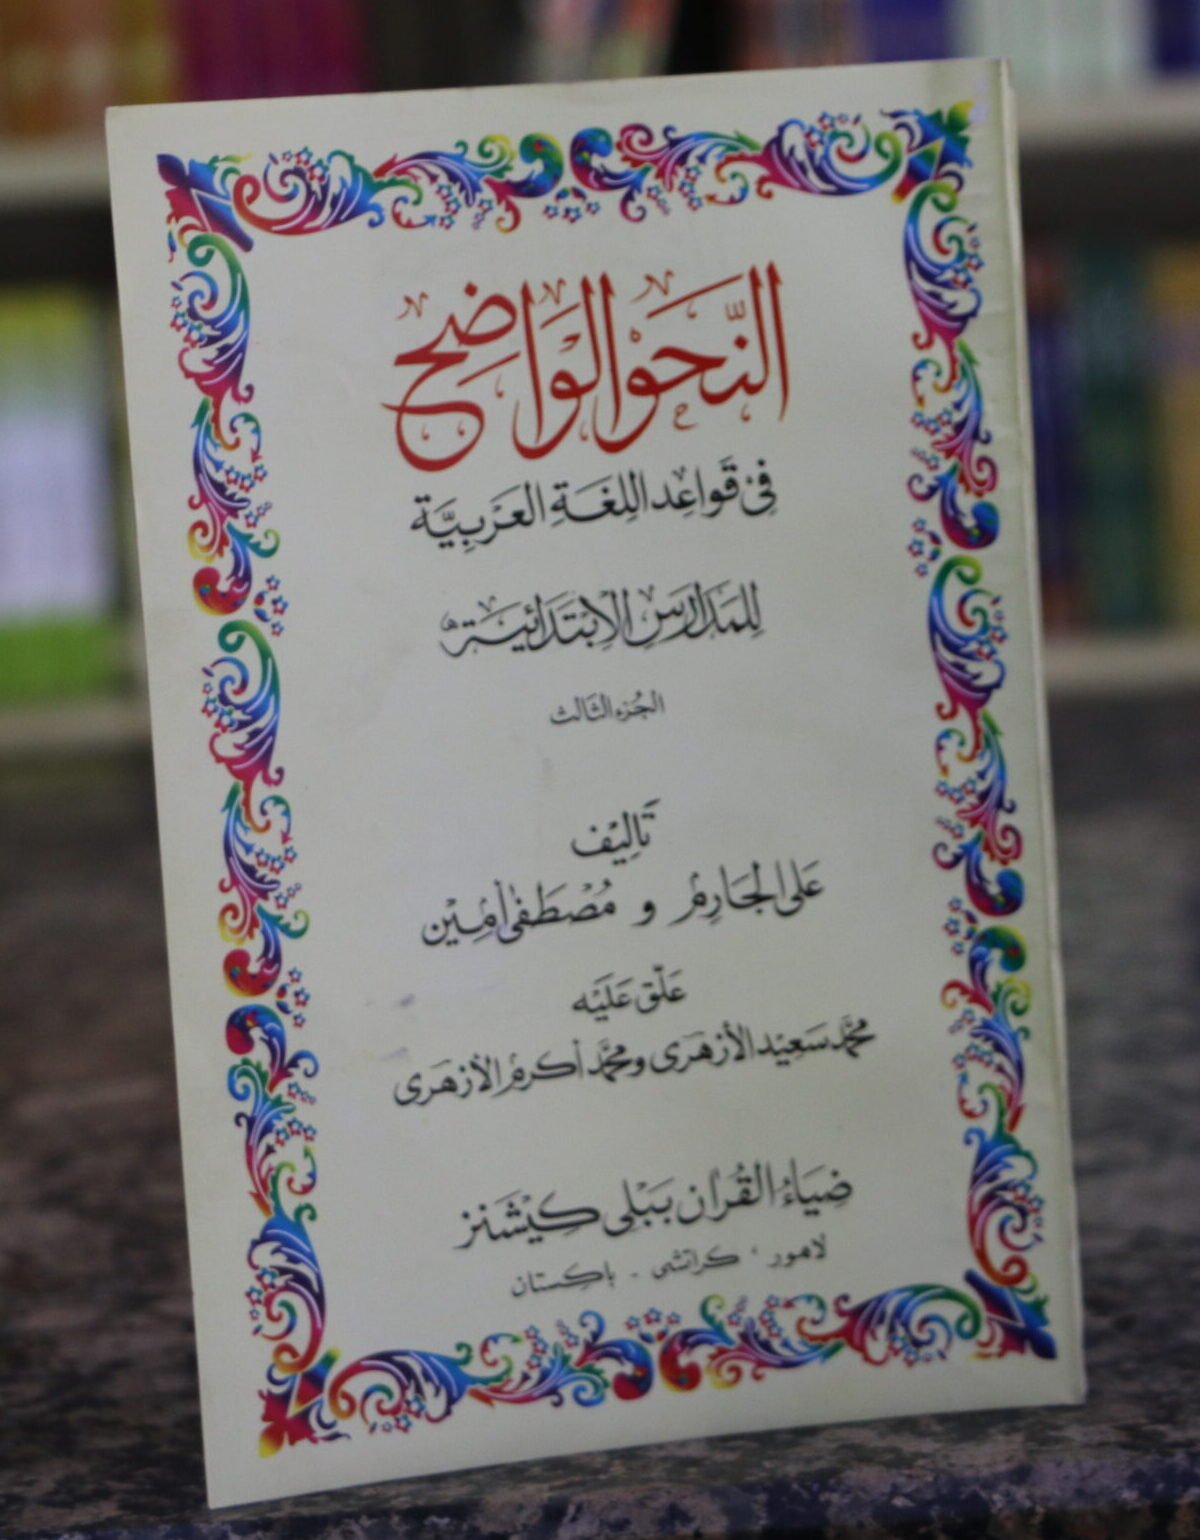 النَّحوُ الوَاضِح
فی قَوَاعِد اللُّغَةِ العَرَبِیَّة
لِلمَدَارِسِ الاِبتَدَائیة
الجُزء الثَالث
تَالِیْف
عَلی الجَارِمْ و مُصْطَفٰی اَمِیْن
عَلّق عَلَیْه
محمَّد سَعِیْد الأزهَری ومحمَّد أکرمْ الأزهَری
ضِیَاءُ القُرآن پَبْلی کیْشَنز
لاهور ، کراتشی - باکستان